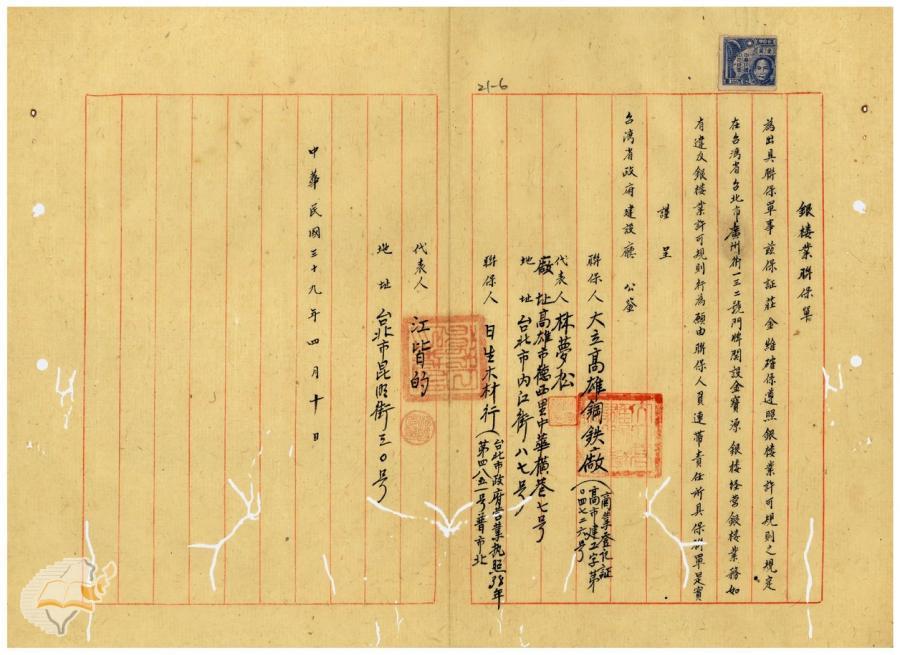 21-6
銀楼業聯保單
為出具聯保單事茲保証莊金 確保遵照銀楼業許可規則之規定
在台湾省台北市廣州街一三二號門牌開設金寶源銀楼経营銀楼業務如
有違反銀楼業許可規則行為願由聯保人員連帶責任所具保 單是實
謹呈
台湾省政府建設廳 公鉴
聯保人 大立高雄鋼鉄廠(商業登記証高市建工字第〇四七二六号)
代表人 林夢松
廠址 高雄市德西里中華橫巷七号
地址 台北市內江街八七号
聯保人 日生木材行(台北市政府营業执照38年第四八五一号普市北
代表人 江皆的
地址 台北市昆明街三〇号
中華民國三十九年四月十日